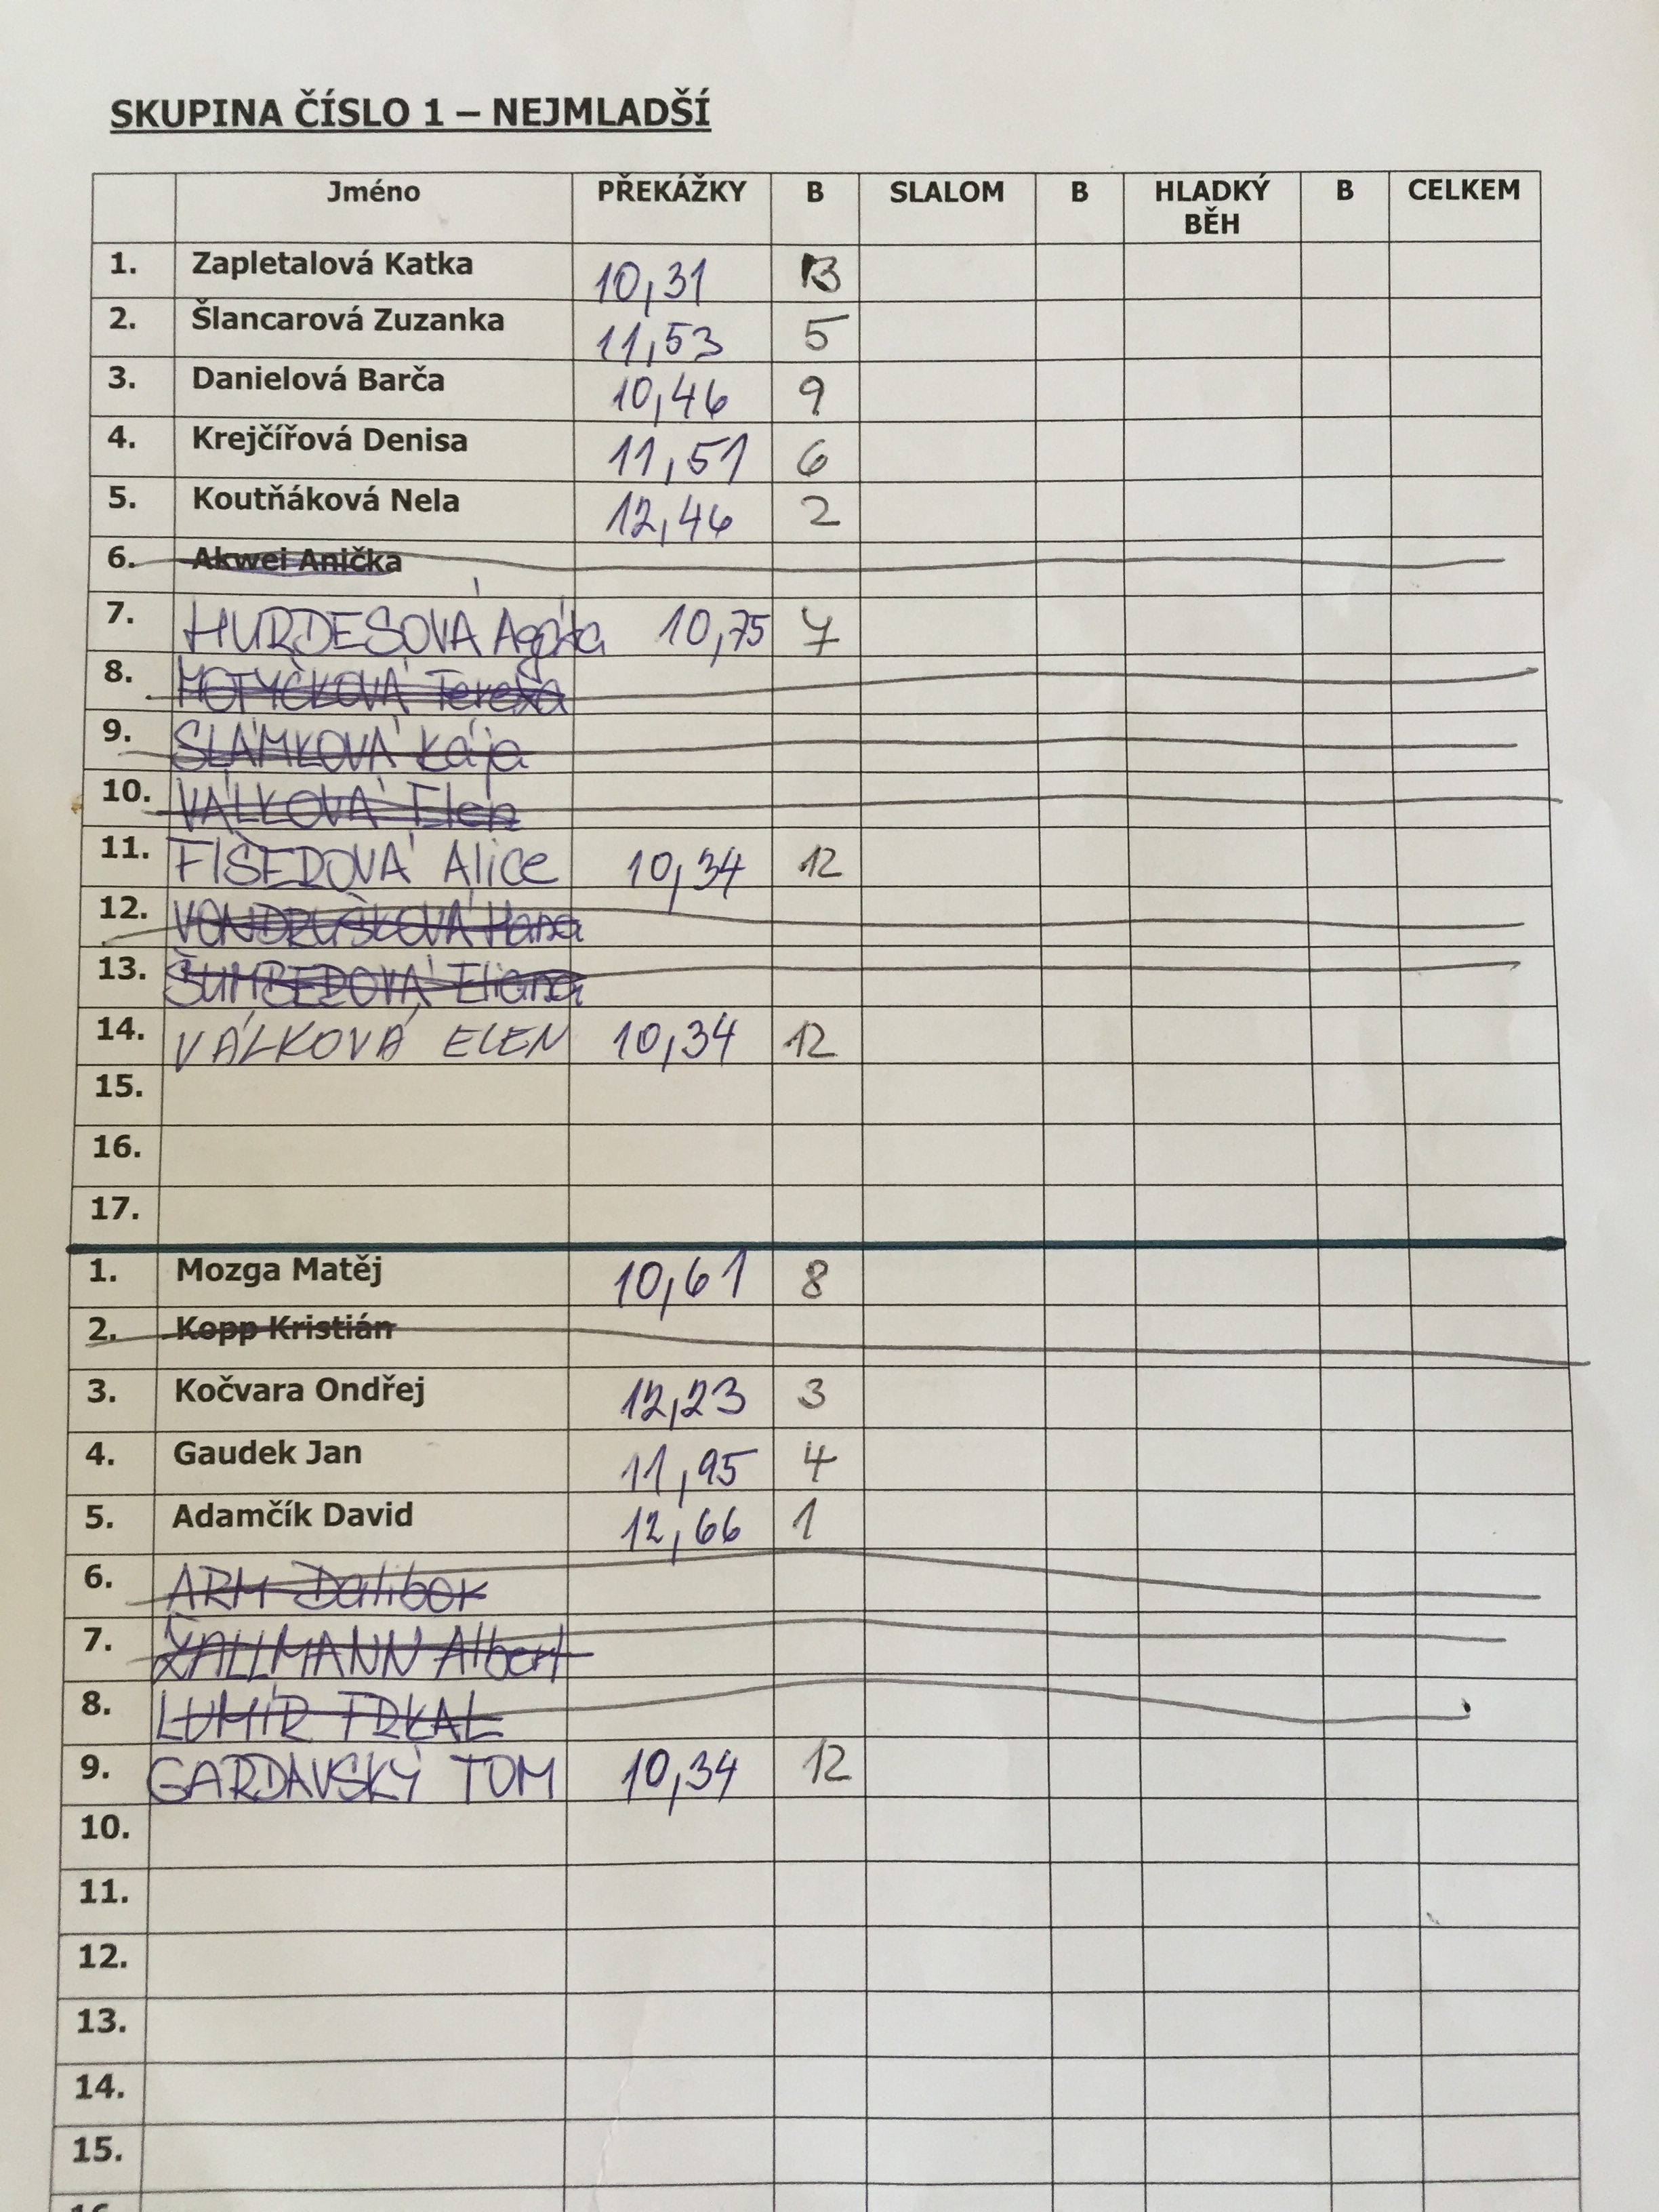 SKUPINA ČÍSLO 1 – NEJMLADŠÍ
Jméno PŘEKÁŽKY B SLALOM B HLADKÝ BĚH B CELKEM
1. Zapletalová Katka 10,31 13
2. Šlancarová Zuzanka 11,53 5
3. Danielová Barča 10,46 9
4. Krejčířová Denisa 11,51 6
5. Koutňáková Nela 12,46 2
6. Akwei Anička
7. HURDESOVÁ Agáta 10,75 7
8. MOTYČKOVÁ Tereza
9. SLÁMKOVÁ Kája
10. VÁLKOVÁ Elen
11. FIŠEROVÁ Alice 10,34 12
12. VONDRUŠKOVÁ Hana
13. Eliana
14. VÁLKOVÁ ELEN 10,34 12
15.
16.
17.
1. Mozga Matěj 10,61 8
2. Kopp Kristián
3. Kočvara Ondřej 12,23 3
4. Gaudek Jan 11,95 4
5. Adamčík David 12,66 1
6. ARM Dalibor
7. Albert
8. LUMÍR FRKAL
9. GARDAVSKÝ TOM 10,34 12
10.
11.
12.
13.
14.
15.